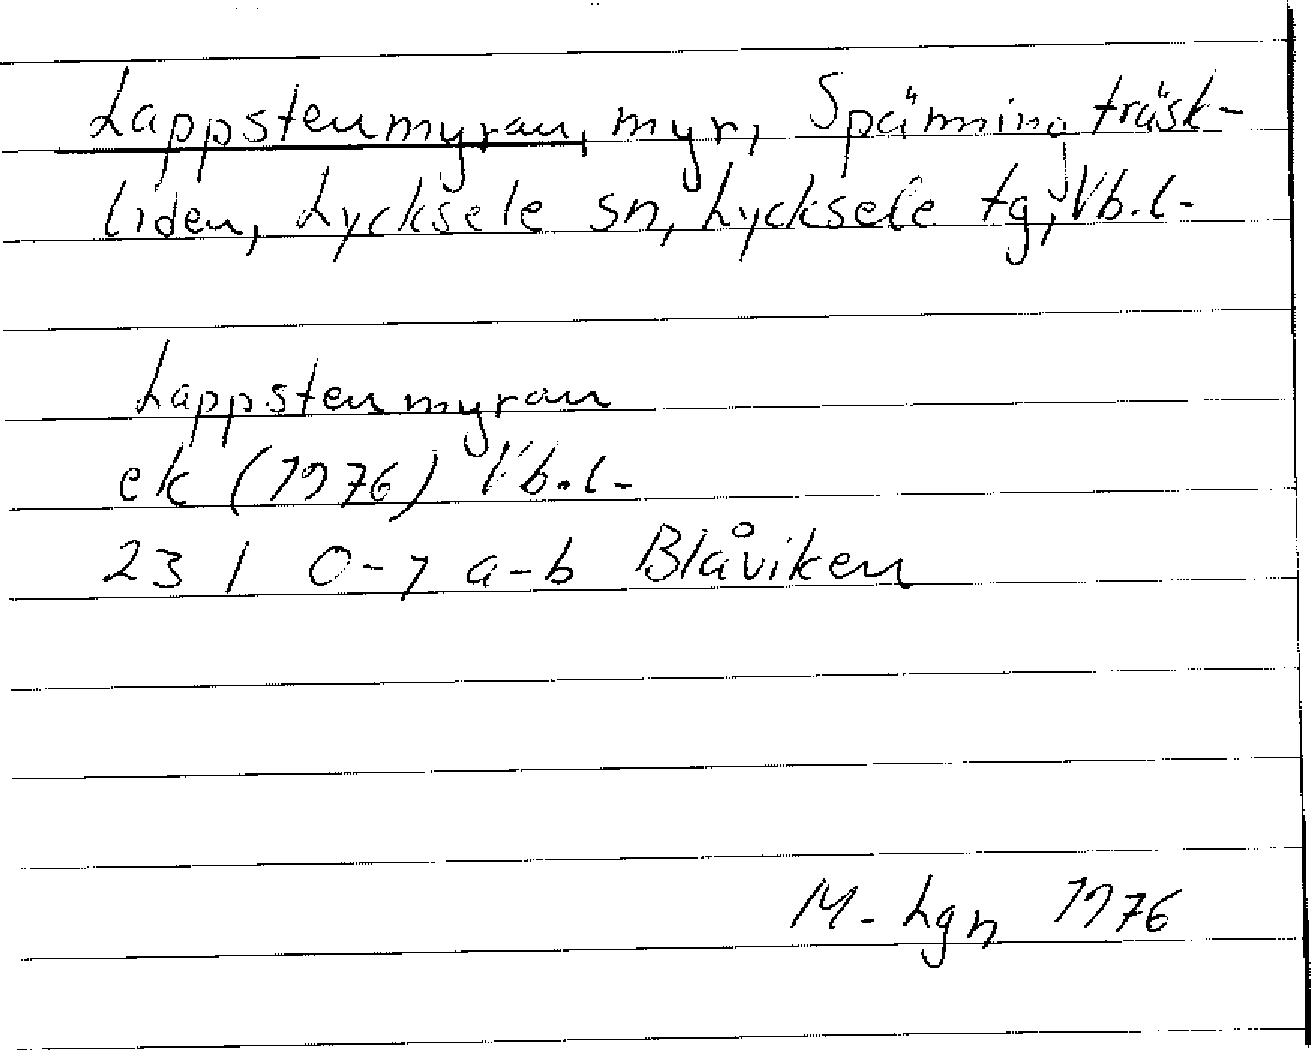 Lappstenmyran, myr, Spänningträsk-
liden, Lycksele sn, Lycksele tg, Vb.l.
Lappstenmyran
ek (1976) Vb.l.
23 I 0-7 a-b Blåviken
M. Lgn 1976